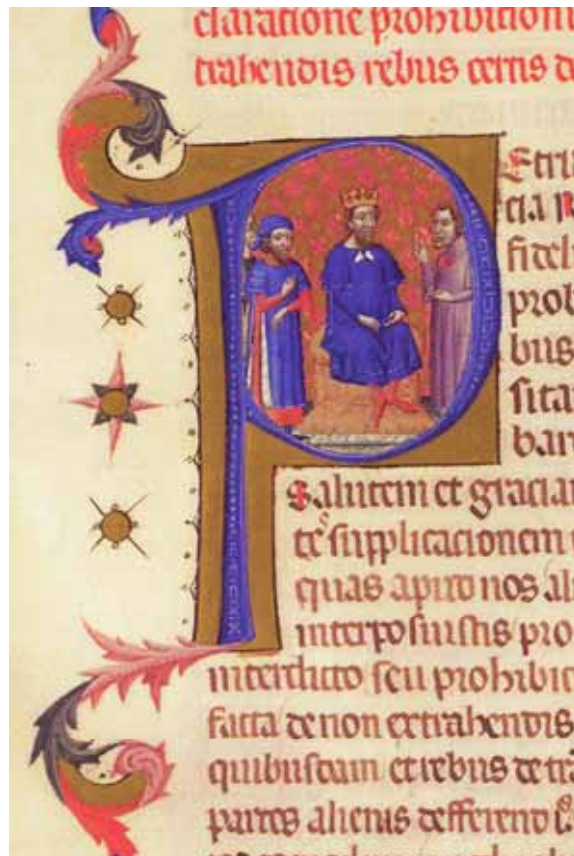 claratione prohibitioni
trahendis rebus certis d
Petru
cia R
fideli
prob
bus
sita
bar
Salutem et graciam
te supplicacionem
quas apud nos al
interposuistis pro
interdicto seu prohibic
facta de non extrahendis
quibusdam et rebus de tra
partes alienis defferend